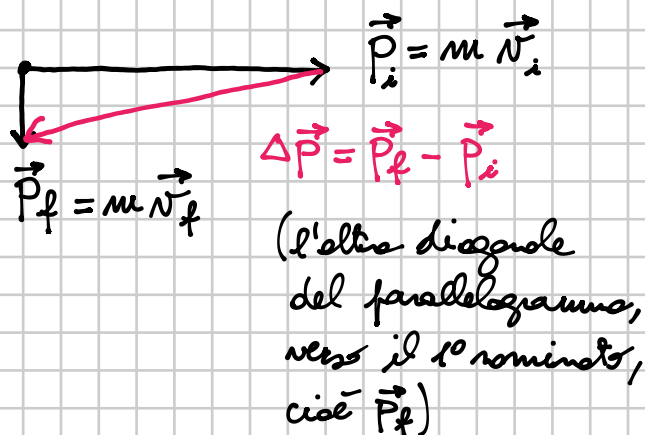 P⃗i = m v⃗i
ΔP⃗ = P⃗f - P⃗i
P⃗f = m v⃗f
(l'altra diagonale
del parallelogramma,
verso il 1° nominato,
cioè P⃗f)